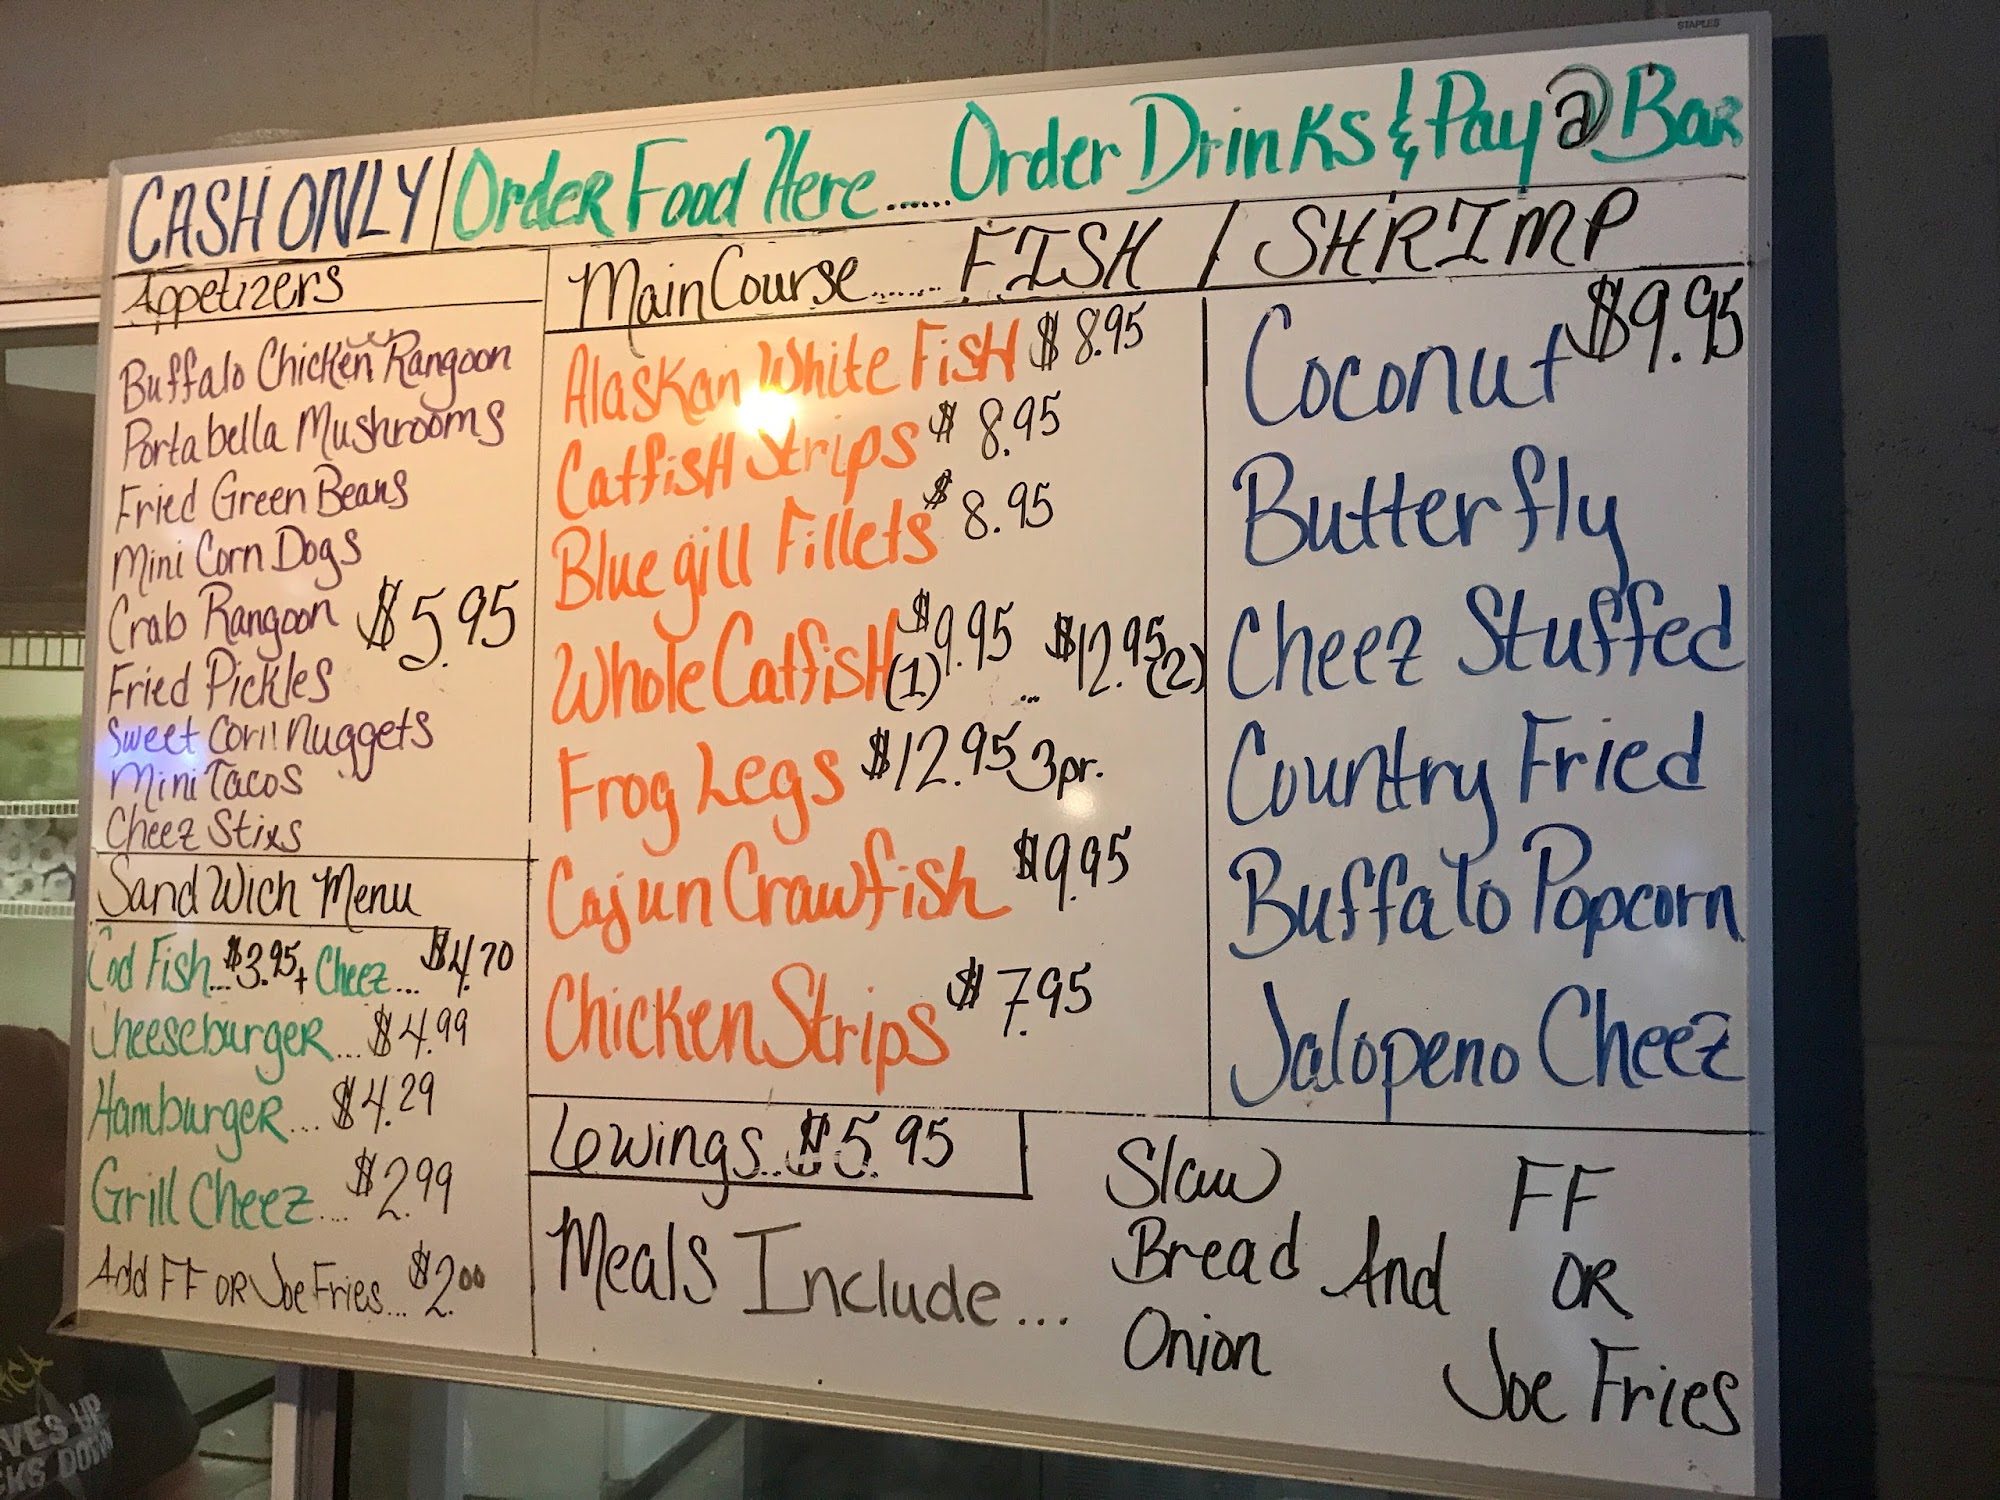 STAPLES
CASH ONLY / Order Food Here...... Order Drinks & Pay @ Bar
Appetizers
Buffalo Chicken Rangoon
Portabella Mushrooms
Fried Green Beans
Mini Corn Dogs
Crab Rangoon $5.95
Fried Pickles
Sweet Corn Nuggets
Mini Tacos
Cheez Stixs
Sandwich Menu
Cod Fish...$3.95 + Cheez... $4.70
Cheeseburger... $4.99
Hamburger... $4.29
Grill Cheez... $2.99
Add FF OR Joe Fries... $2.00
Main Course....... FISH / SHRIMP
Alaskan White Fish $8.95
Catfish Strips $8.95
Bluegill Fillets $8.95
Whole Catfish (1) $9.95 ... $12.95 (2)
Frog Legs $12.95 3pr.
Cajun Crawfish $9.95
Chicken Strips $7.95
Coconut $9.95
Butterfly
Cheez Stuffed
Country Fried
Buffalo Popcorn
Jalopeno Cheez
6 wings... $5.95
Meals Include...
Slaw
Bread
Onion
And
FF
OR
Joe Fries
VES UP
CKS DOWN